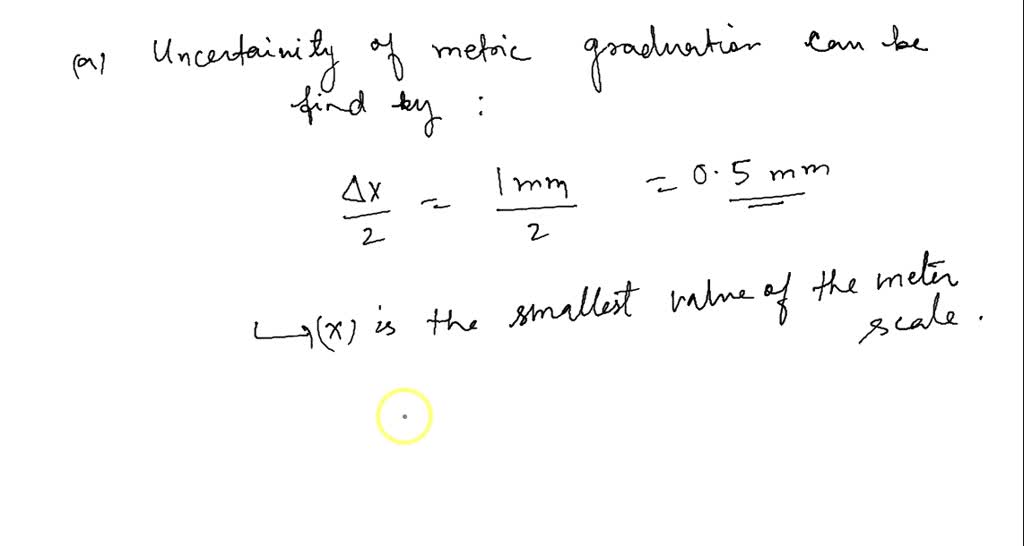 (a) Uncertainity of metric graduation can be
find by :
Δx/2 = 1mm/2 = 0.5 mm
↳ (x) is the smallest value of the meter
scale.